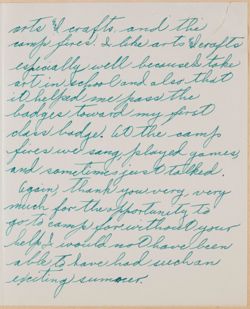 arts & crafts, and the
camp fires. I like arts & crafts
especially well because I take
art in school and also that
it helped me pass the
badges toward my first
class badge. At the camp
fires we sang, played games,
and sometimes just talked.
Again, thank you very, very
much for the opportunity to
go to camp for without your
help I would not have been
able to have had such an
exciting summer.